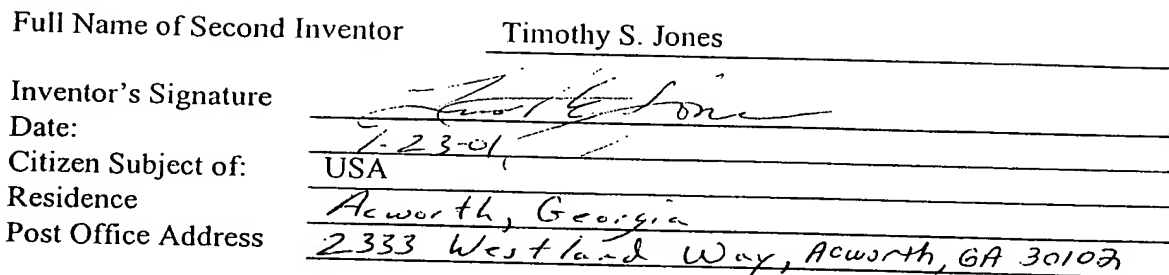 Full Name of Second Inventor Timothy S. Jones
Inventor's Signature
Date: 7-23-01
Citizen Subject of: USA
Residence Acworth, Georgia
Post Office Address 2333 Westland Way, Acworth, GA 30102